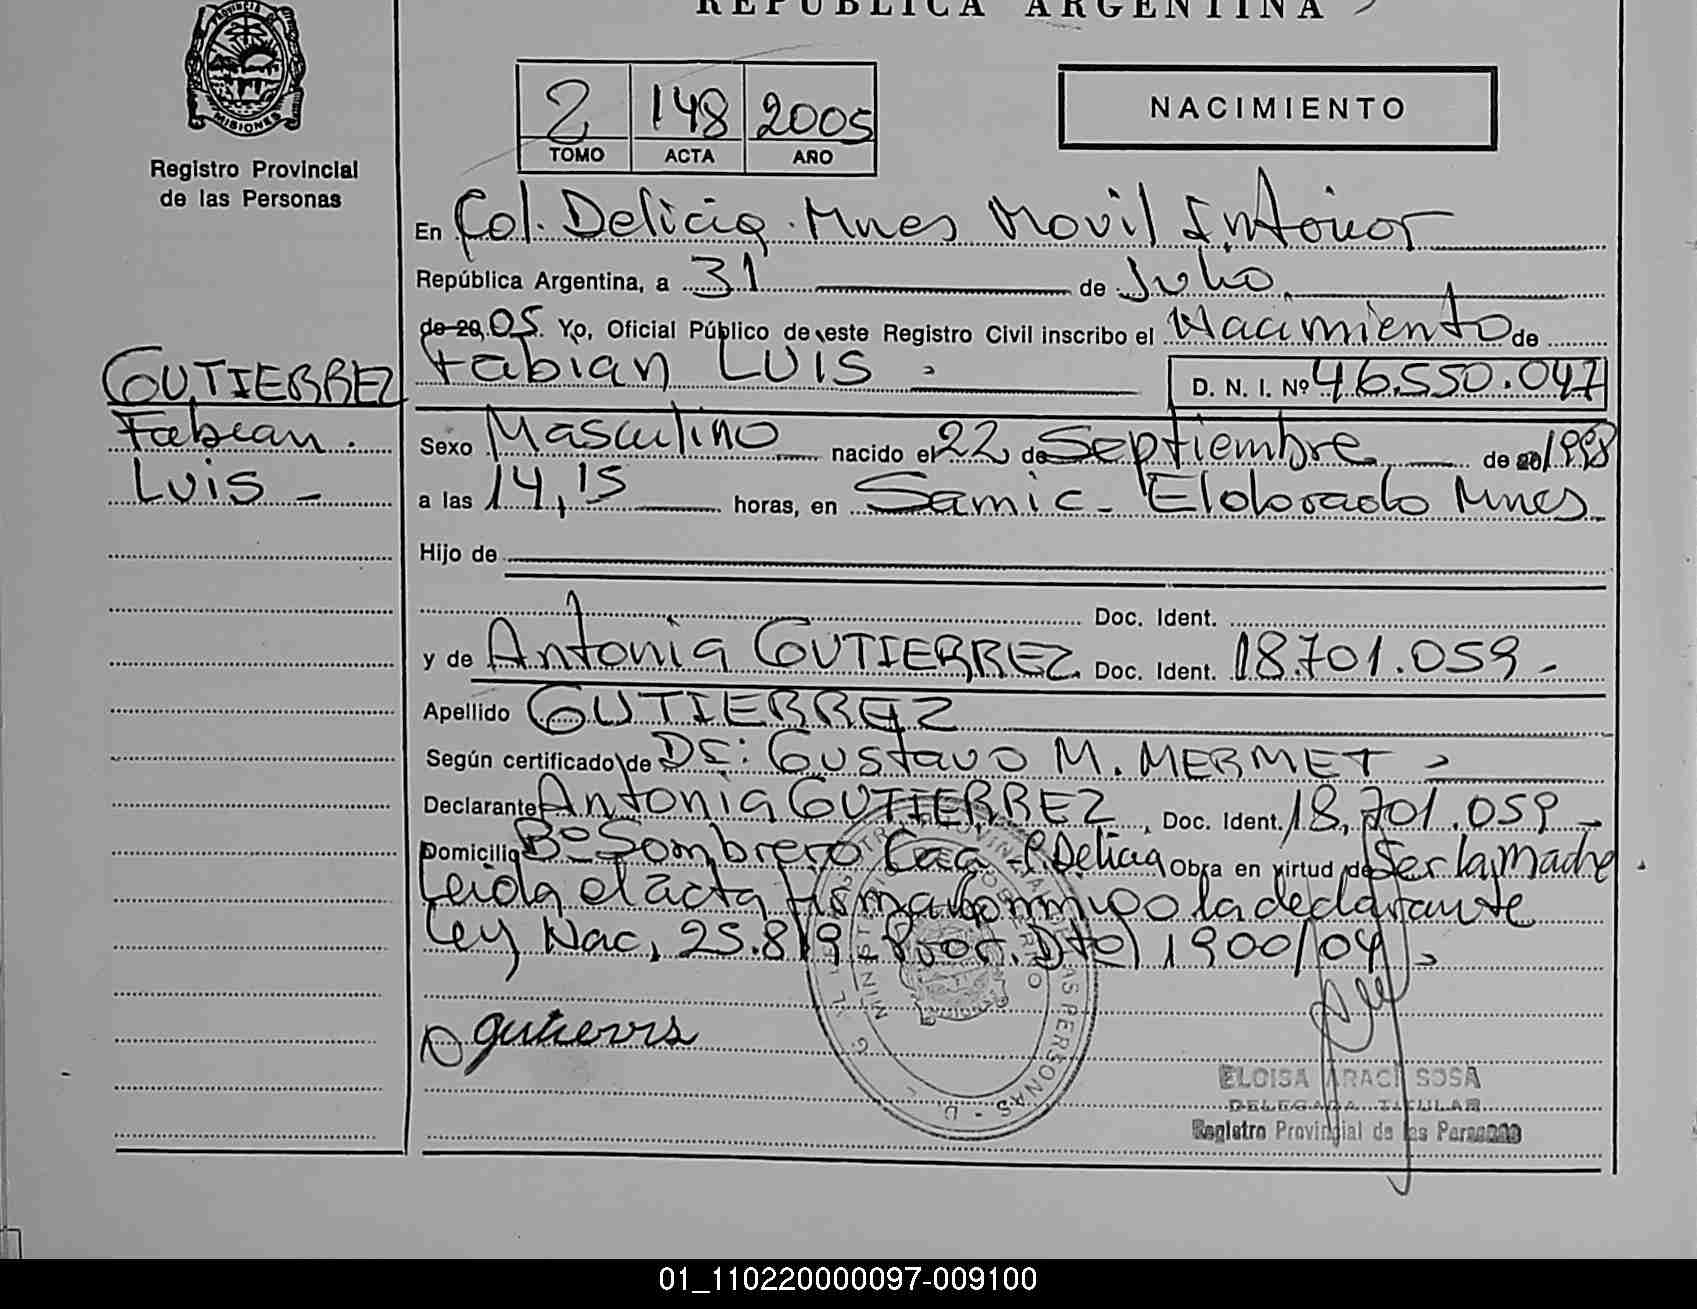 REPUBLICA ARGENTINA
PROVINCIA DE
MISIONES
Registro Provincial
de las Personas
2 148 2005
TOMO ACTA AÑO
NACIMIENTO
En Col. Delicia. Mnes Movil Interior
República Argentina, a 31 de Julio
de 20 05. Yo, Oficial Público de este Registro Civil inscribo el Nacimiento de
Fabian LUIS D. N. I. Nº 46.550.047
GUTIERREZ
Fabian.
Luis -
Sexo Masculino nacido el 22 de Septiembre de 20 1998
a las 14,15 horas, en Samic - Eldorado Mnes
Hijo de
Doc. Ident.
y de Antonia GUTIERREZ Doc. Ident. 18.701.059 -
Apellido GUTIERREZ
Según certificado de Dr: Gustavo M. MERMET
Declarante Antonia GUTIERREZ, Doc. Ident. 18.701.059 -
Domicilio Bº Sombrero Delicia Obra en virtud de Ser la madre
Leida el acta firma conmigo la declarante
Ley Nac, 25.819 Pror. Dto 1900/04
gutierrs
ELOISA ARACI SOSA
DELEGADA TITULAR
Registro Provincial de las Personas
01_110220000097-009100